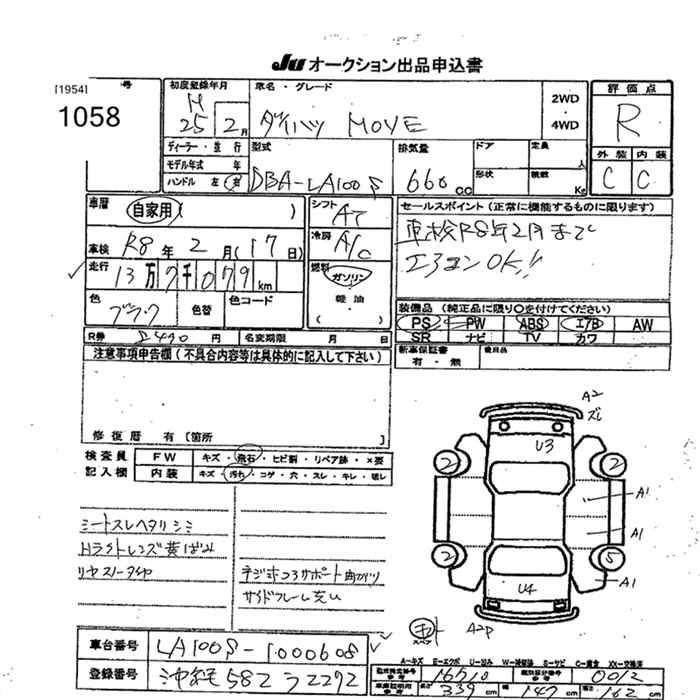 JU オークション出品申込書
[1954] 号
1058
初度登録年月
H
25 2月
車名・グレード
ダイハツ MOVE
2WD
・
4WD
評価点
R
外装 内装
C C
ディーラー・並行
モデル年式 年
ハンドル 左 右
型式
DBA-LA100S
排気量
660 C.C
ドア
定員 人
形状
積数 Kg
車歴 自家用( )
車検 R8年2月(17日)
走行 13万7千079 km
色 ブラック 色替 色コード
シフト AT
冷房 A/C
燃料
ガソリン
軽油
( )
セールスポイント(正常に機能するものに限ります)
車検R8年2月まで
エアコンOK!!
装備品(純正品に限り○を付けてください)
PS PW ABS エアB AW
SR ナビ TV カワ
R券 5490 円 名変期限 月 日
新車保証書
有・無
後日品
注意事項申告欄(不具合内容等は具体的に記入して下さい)
修復歴 有 〔箇所 〕
検査員
記入欄
FW キズ・飛石・ヒビ割・リペア跡・×要
内装 キズ・汚れ・コゲ・穴・スレ・キレ・破レ
シートスレヘタリシミ
Hライトレンズ黄ばみ
ネジ
サポート曲がり
サイドフレーム
A2
ズレ
U3
2 2
A1
A1
2 5
A1
U4
A2P
車台番号 LA100S-1000608
登録番号 沖縄582ラ2292
A-キズ E-エクボ U-凹ミ W-補修跡 S-サビ C-腐食 XX-交換済
16510 0012
長さ 339 cm 幅 147 cm 高さ 162 cm